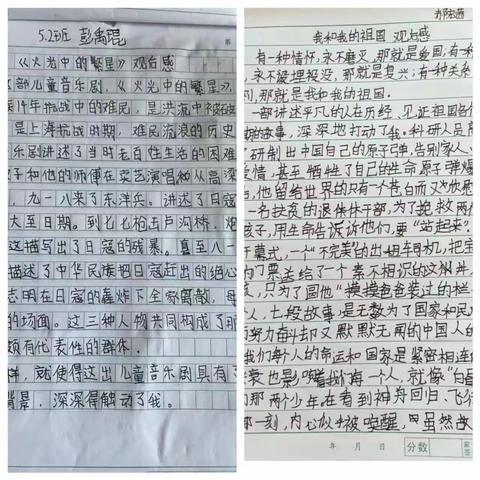 5.2班 彭禹琨
《火光中的繁星》观后感
部儿童音乐剧,《火光中的繁星》,
14年抗战中的难民,是洪流中
是上海抗战时期,难民流浪的历史
乐剧讲述了当时老百姓生活的困难
子和他的师傅在卖艺演唱
,九一八来了东洋兵。讲述了日寇
大至日期。到七七枪击卢沟桥,炮
这描写出了日寇的残暴。直至八一
描述了中华民族把日寇赶出的决心
志明在日寇的轰炸下全家离散,母
的场面。这三种人物共同构成了那
颇有代表性的群体。
样,就使得这出儿童音乐剧具有了
背景,深深得触动了我。
我和我的祖国 观后感
有一种情怀,永不磨灭,那就是爱国;有一种
,永不被埋投没,那就是复兴;有一种关系
别,那就是我和我的祖国。
一部讲述平凡的人在历经、见证祖国
的故事,深深地打动了我。科研人员
了研制出中国自己的原子弹,告别家人
爱情,甚至牺牲了自己的生命原子弹爆
,他留给世界的只有一个苍白而又
一名扶贫的退休休干部,为了挽救两
孩子,用生命告诉他们,要“站起来”
开幕式,一个“不完美”的出租车司机,把宝
门票送给了一个素不相识的汶川
孩,只为了圆他“摸摸爸爸装过的栏
人,七段故事,是无数为了国家和民
而努力奋斗却又默默无闻的中国人的
我们每个人的命运和国家是紧密相连
衰也影响着我们每一个人,就像“白昼
的那两个少年,在看到神舟回归、飞
那一刻,内心似乎被唤醒,虽然
年 月 日
分数